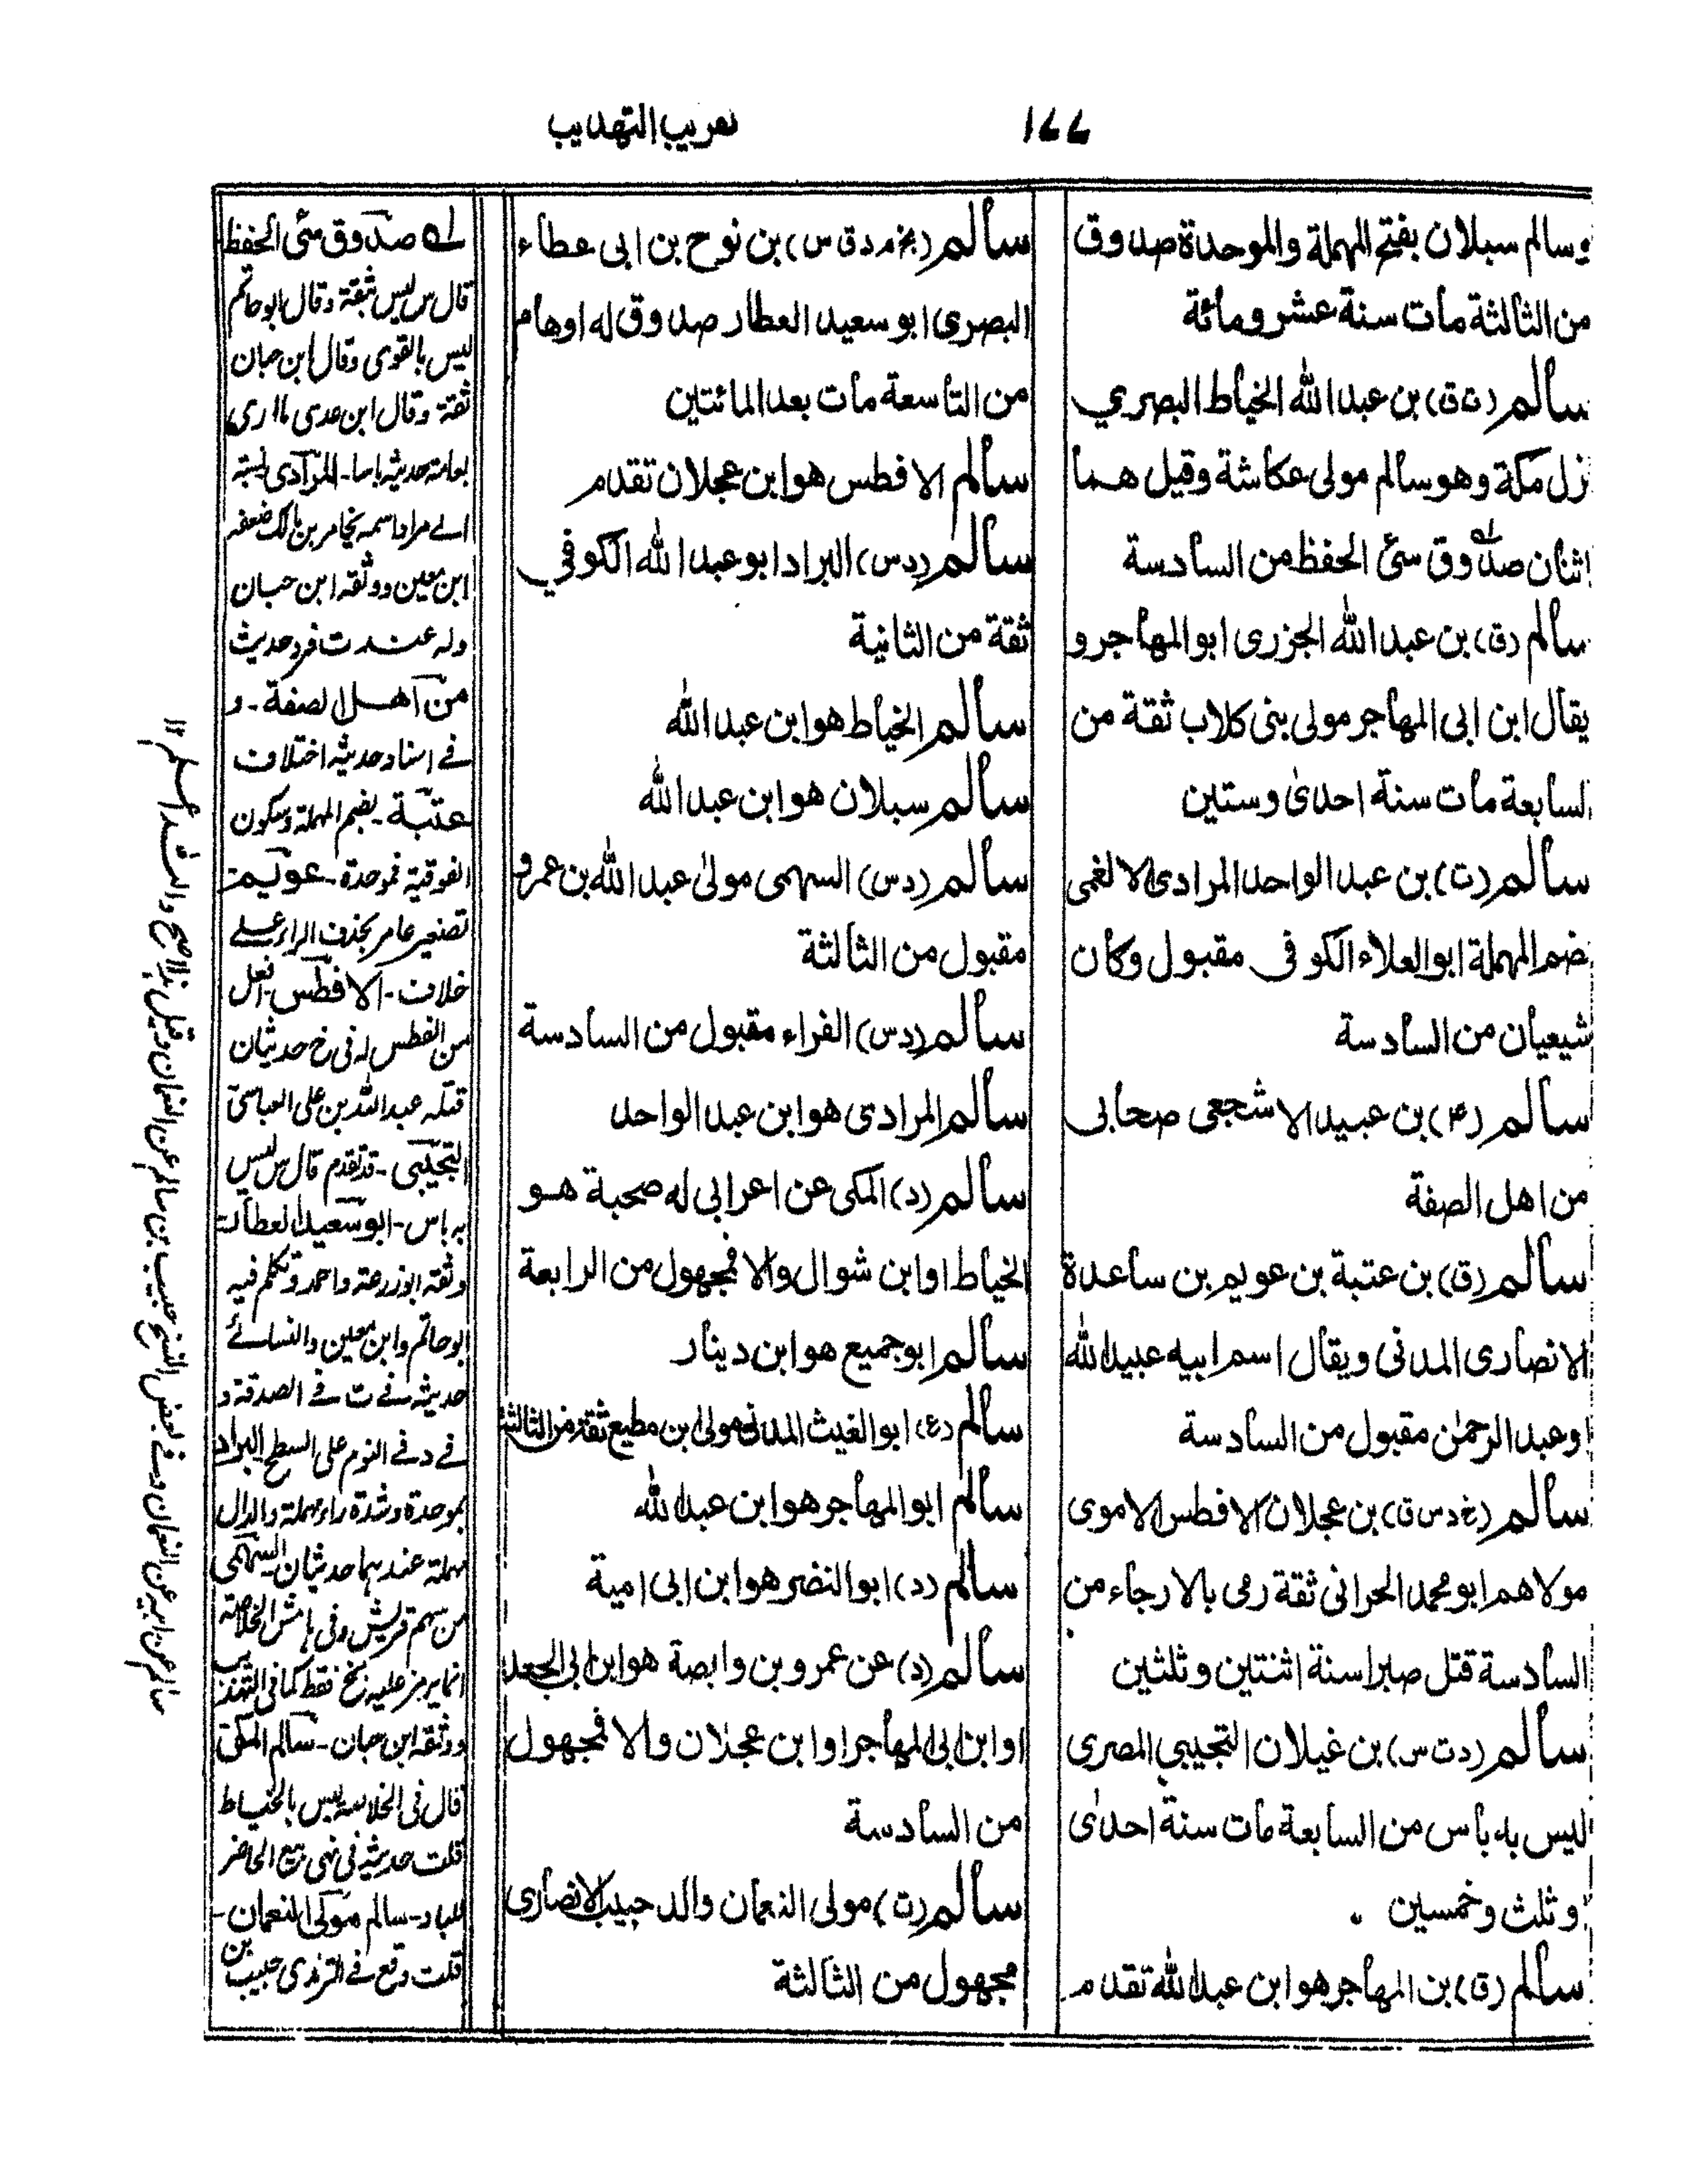 ١٧٧
تقريب التهذيب
وسالم سبلان بفتح المهملة والموحدة صدوق
من الثالثة مات سنة عشر ومائة
سالم (ت ق) بن عبد الله الخياط البصري
نزل مكة وهو سالم مولى عكاشة وقيل هما
اثنان صدوق سئ الحفظ من السادسة
سالم (ق) بن عبد الله الجزرى ابو المهاجر و
يقال ابن ابى المهاجر مولى بنى كلاب ثقة من
السابعة مات سنة احدى وستين
سالم (ت) بن عبد الواحد المرادى الانعمى
بضم المهملة ابو العلاء الكوفى مقبول وكان
شيعيان من السادسة
سالم (٤) بن عبيد الاشجعى صحابى
من اهل الصفة
سالم (ق) بن عتبة بن عويم بن ساعدة
الانصارى المدنى ويقال اسم ابيه عبيد الله
او عبد الرحمٰن مقبول من السادسة
سالم (خ د س ق) بن عجلان الافطس الاموى
مولاهم ابو محمد الحرانى ثقة رمى بالارجاء من
السادسة قتل صبرا سنة اثنتين وثلثين
سالم (د ت س) بن غيلان التجيبي المصرى
ليس به باس من السابعة مات سنة احدى
او ثلث وخمسين
سالم (ق) بن المهاجر هو ابن عبد الله تقدم
سالم (بخ م د ق س) بن نوح بن ابى عطاء
البصرى ابو سعيد العطار صدوق له اوهام
من التاسعة مات بعد المائتين
سالم الافطس هو ابن عجلان تقدم
سالم (د س) البراد ابو عبد الله الكوفي
ثقة من الثانية
سالم الخياط هو ابن عبد الله
سالم سبلان هو ابن عبد الله
سالم (د س) السهمى مولى عبد الله بن عمرو
مقبول من الثالثة
سالم (د س) الفراء مقبول من السادسة
سالم المرادى هو ابن عبد الواحد
سالم (د) المكى عن اعرابى له صحبة هو
الخياط او ابن شوال والا فمجهول من الرابعة
سالم ابو جميع هو ابن دينار
سالم (ع) ابو الغيث المدنى مولى ابن مطيع ثقة من الثالثة
سالم ابو المهاجر هو ابن عبد الله
سالم (د) ابو النضر هو ابن ابى امية
سالم (د) عن عمرو بن وابصة هو ابن ابى الجعد
او ابن ابى المهاجر او ابن عجلان والا فمجهول
من السادسة
سالم (ت) مولى النعمان والد حبيب الانصارى
مجهول من الثالثة
له صدوق سئ الحفظ
قال س ليس بثقة وقال ابو حاتم
ليس بالقوى وقال ابن حبان
ثقة وقال ابن عدى ما ارى
بعامة حديثه باسا - المرادى نسبة
الے مراد اسمه يحابر بن مالك ضعفه
ابن معين ووثقه ابن حبان
وله عند ت فرد حديث
من اهل الصفة - و
فے اسناد حديثه اختلاف
عتبة - بضم المهملة وسكون
الفوقية فموحدة - عويم
تصغير عامر بحذف الراء علے
خلاف - الافطس افعل
من الفطس له فى خ حديثان
قتله عبد الله بن على العباسى
التجيبى - قد تقدم قال س ليس
به باس - ابو سعيد العطار
وثقه ابو زرعة واحمد وتكلم فيه
ابو حاتم وابن معين والنسائے
حديثه فے ت فے الصدقة و
فے د فے النوم على السطح البراد
بموحدة وشدة راء مهملة والدال
مهملة عندهما حديثان السهمى
من سهم قريش وفى هامش الخلاصة
انما يرمز عليه بخ فقط كما فى التهذيب
ووثقه ابن حبان - سالم المكى
قال فى الخلاصة ليس بالخياط
قلت حديثه فى نهى بيع الحاضر
للباد - سالم مولى النعمان -
قلت وقع فے الترمذى حبيب بن
سالم عن ابيه عن النعمان وفے بعض النسخ حبيب بن سالم عن النعمان وقيل هذا اصح والله اعلم ١٢